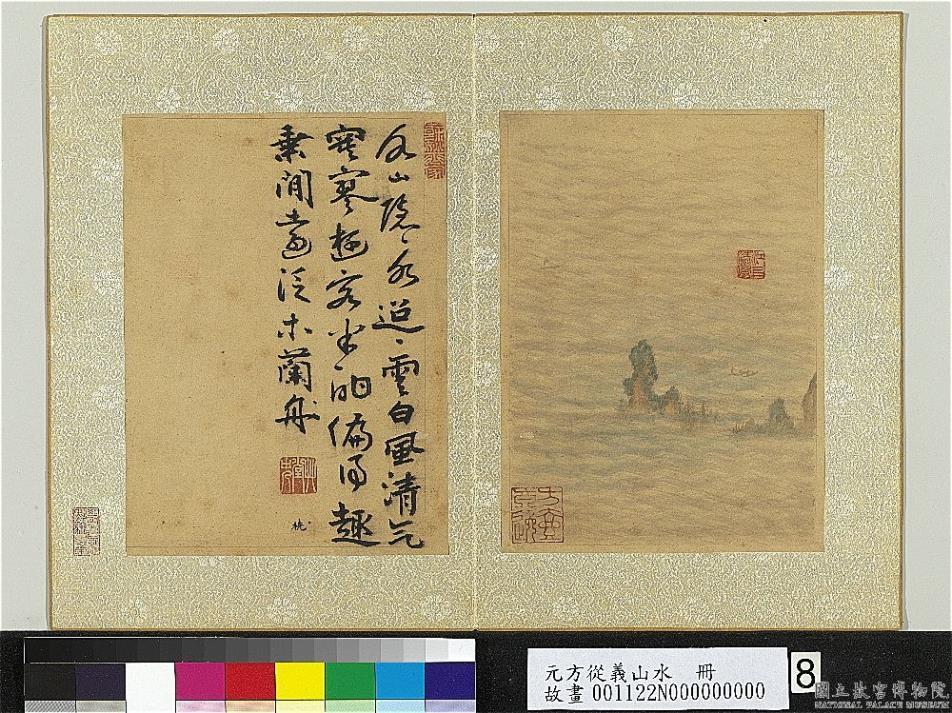 山隱〻水迢〻雲白風清氣
寂寥遊客半酣偏得趣
乘閒泛木蘭舟
橈
元方從義山水　冊
故畫 001122N000000000
8
國立故宮博物院
NATIONAL PALACE MUSEUM